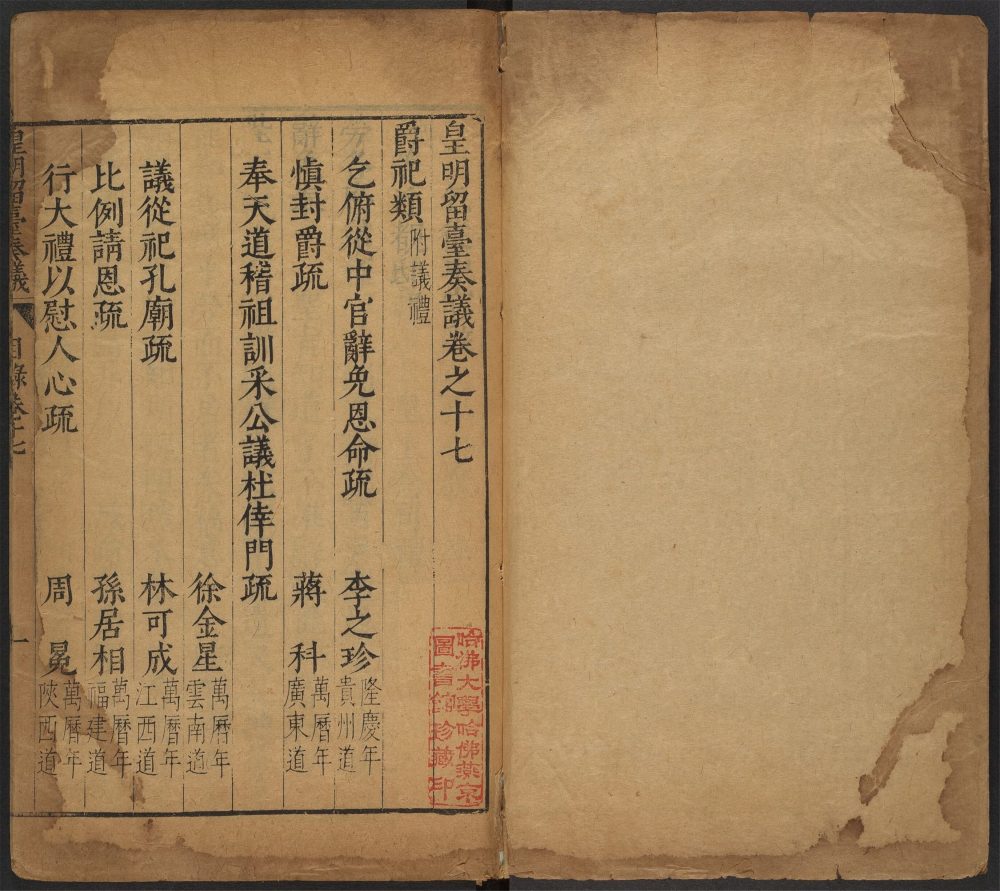 皇明留臺奏議卷之十七
爵祀類附議禮
乞俯從中官辭免恩命疏 李之珍 隆慶年貴州道
慎封爵疏 蔣科 萬曆年廣東道
奉天道稽祖訓采公議杜倖門疏
徐金星 萬曆年雲南道
議從祀孔廟疏 林可成 萬曆年江西道
比例請恩疏 孫居相 萬曆年福建道
行大禮以慰人心疏 周冕 萬曆年陝西道
皇明留臺奏議 目錄卷十七 一
哈佛大學哈佛燕京圖書館珍藏印